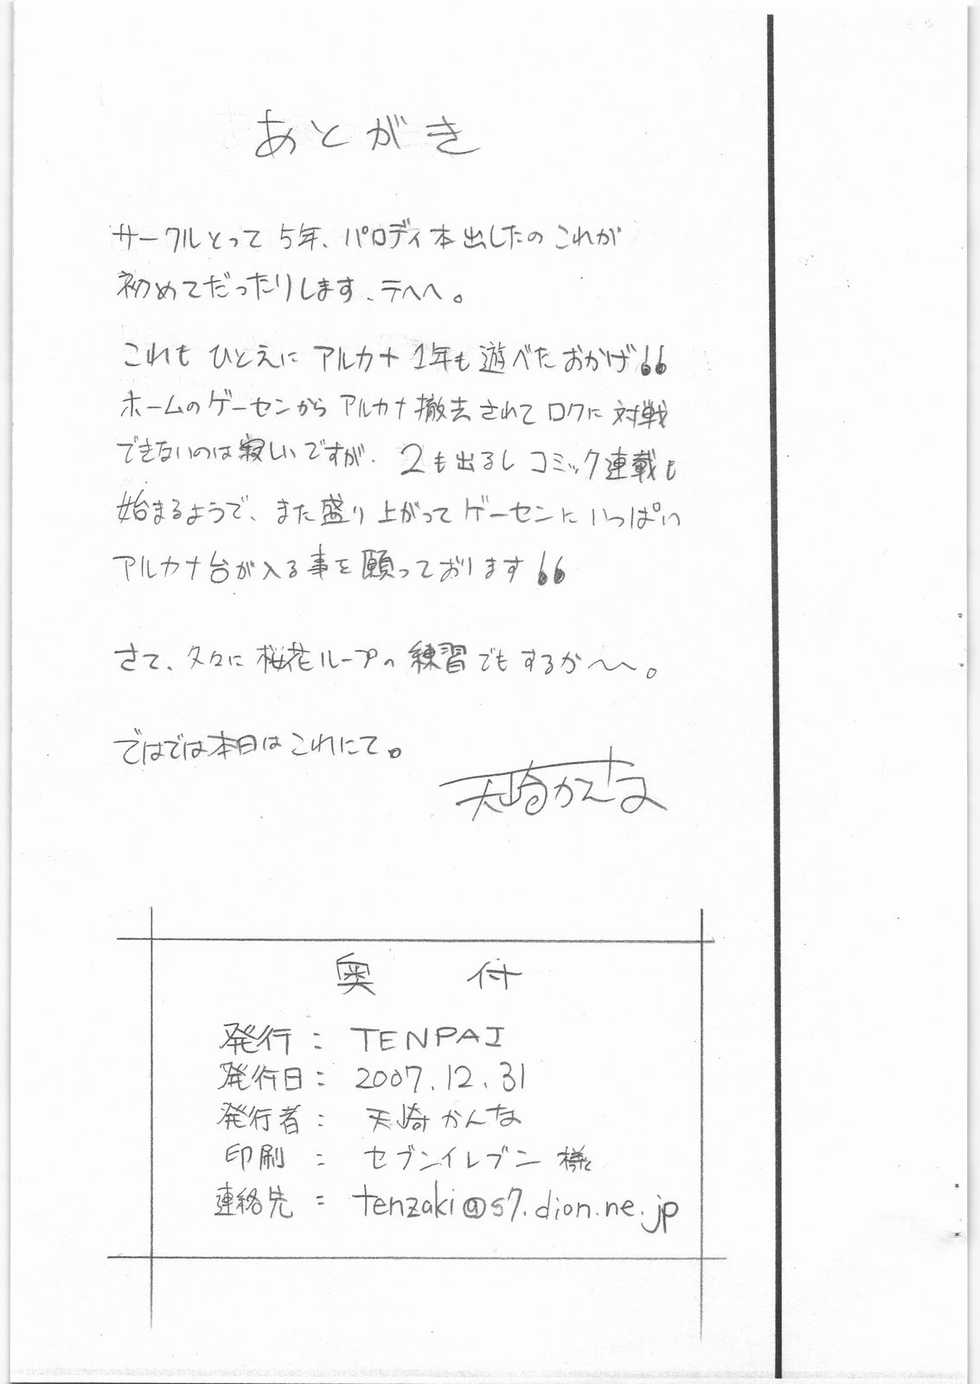 あとがき
サークルとって5年、パロディ本出したのこれが
初めてだったりします、テヘヘ。
これもひとえにアルカナ1年も遊べたおかげ!!
ホームのゲーセンからアルカナ撤去されてロクに対戦
できないのは寂しいですが、2も出るしコミック連載も
始まるようで、また盛り上がってゲーセンにいっぱい
アルカナ台が入る事を願っております!!
さて、久々に桜花ループの練習でもするか〜〜。
ではでは本日はこれにて。
天崎かんな
奥付
発行：TENPAI
発行日：2007.12.31
発行者：天崎かんな
印刷：セブンイレブン様
連絡先：tenzaki@s7.dion.ne.jp